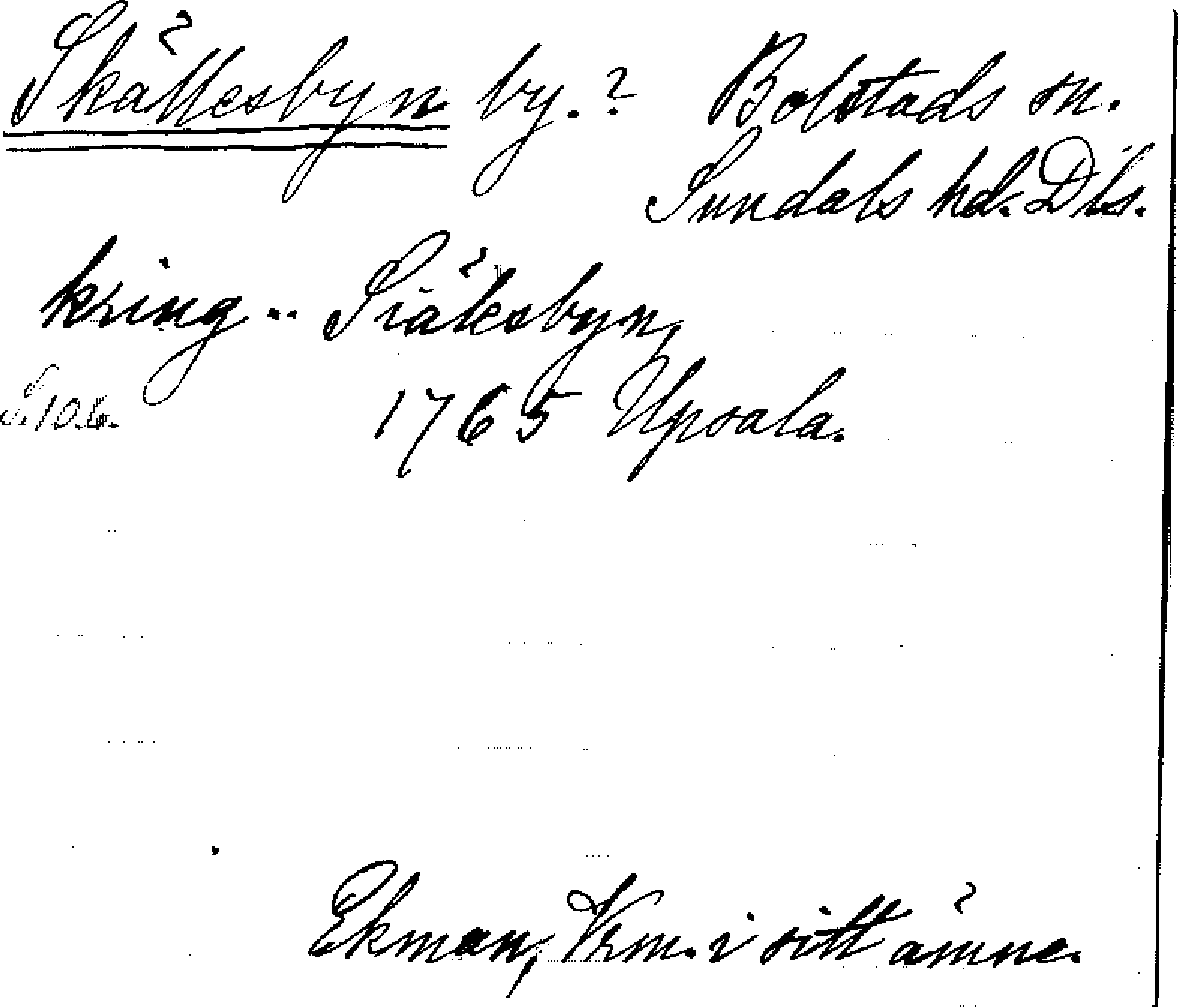 Skällesbyn by.? Bolstads sn.
Sundals hd. Dls.
kring .. Siälesbyn,
S. 106. 1765 Upsala.
Ekman, Vrm. i sitt ämne.